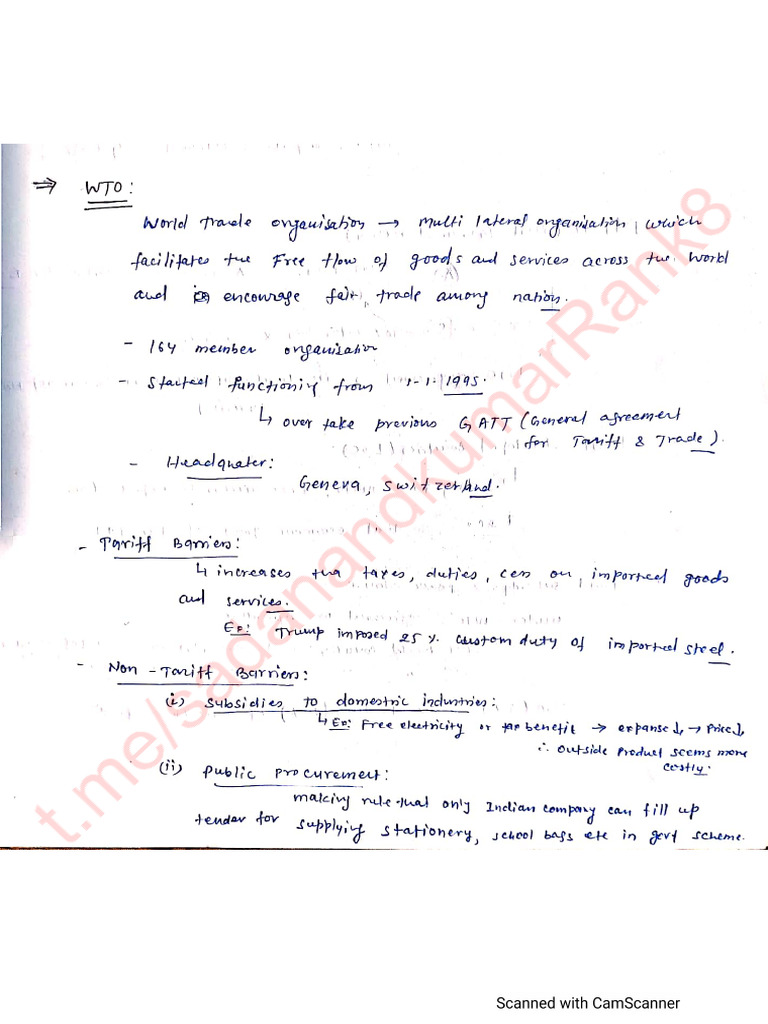 ⇒ WTO:
World trade organisation → Multi lateral organisation, which
facilitates the Free flow of goods and services across the world
and encourage fair trade among nation.
- 164 member organisation
- Started functioning from 1-1-1995.
↳ over take previous GATT (General agreement
for Tariff & Trade).
- Headquater:
Geneva, Switzerland.
- Tariff Barriers:
↳ increases the taxes, duties, cess on imported goods
and services.
Eg: Trump imposed 25% custom duty of imported steel.
- Non-Tariff Barriers:
(i) Subsidies to domestric industries:
↳ Eg: Free electricity or tax benefit → expanse↓ → Price↓
∴ outside product seems more
costly.
(ii) Public Procurement:
making rule that only Indian company can fill up
tender for supplying stationery, school bags etc in govt scheme.
t.me/sadanandkumarRank8
Scanned with CamScanner